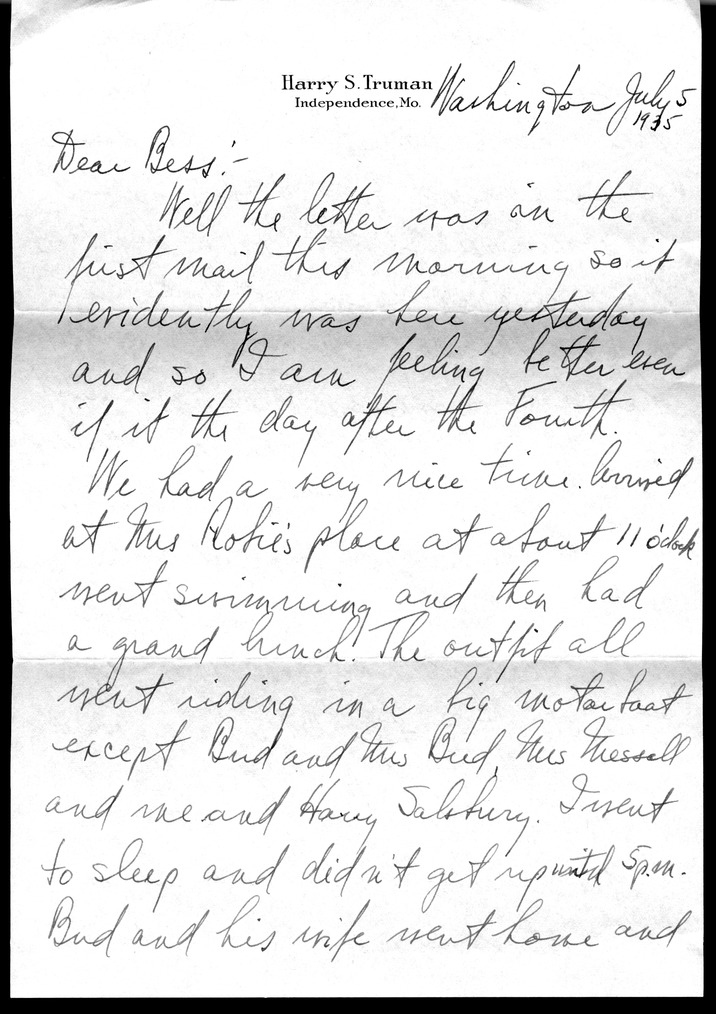 Harry S. Truman
Independence, Mo.
Washington July 5
1935
Dear Bess:-
Well the letter was in the
first mail this morning so it
evidently was here yesterday
and so I am feeling better even
if it the day after the Fourth.
We had a very nice time. Arrived
at Mrs place at about 11 o'clock
went swimming and then had
a grand lunch. The outfit all
went riding in a big motor boat
except Bud and Mrs Bud, Mrs Messall
and me and Harry Salsbury. I went
to sleep and didn't get up until 5 p.m.
Bud and his wife went home and